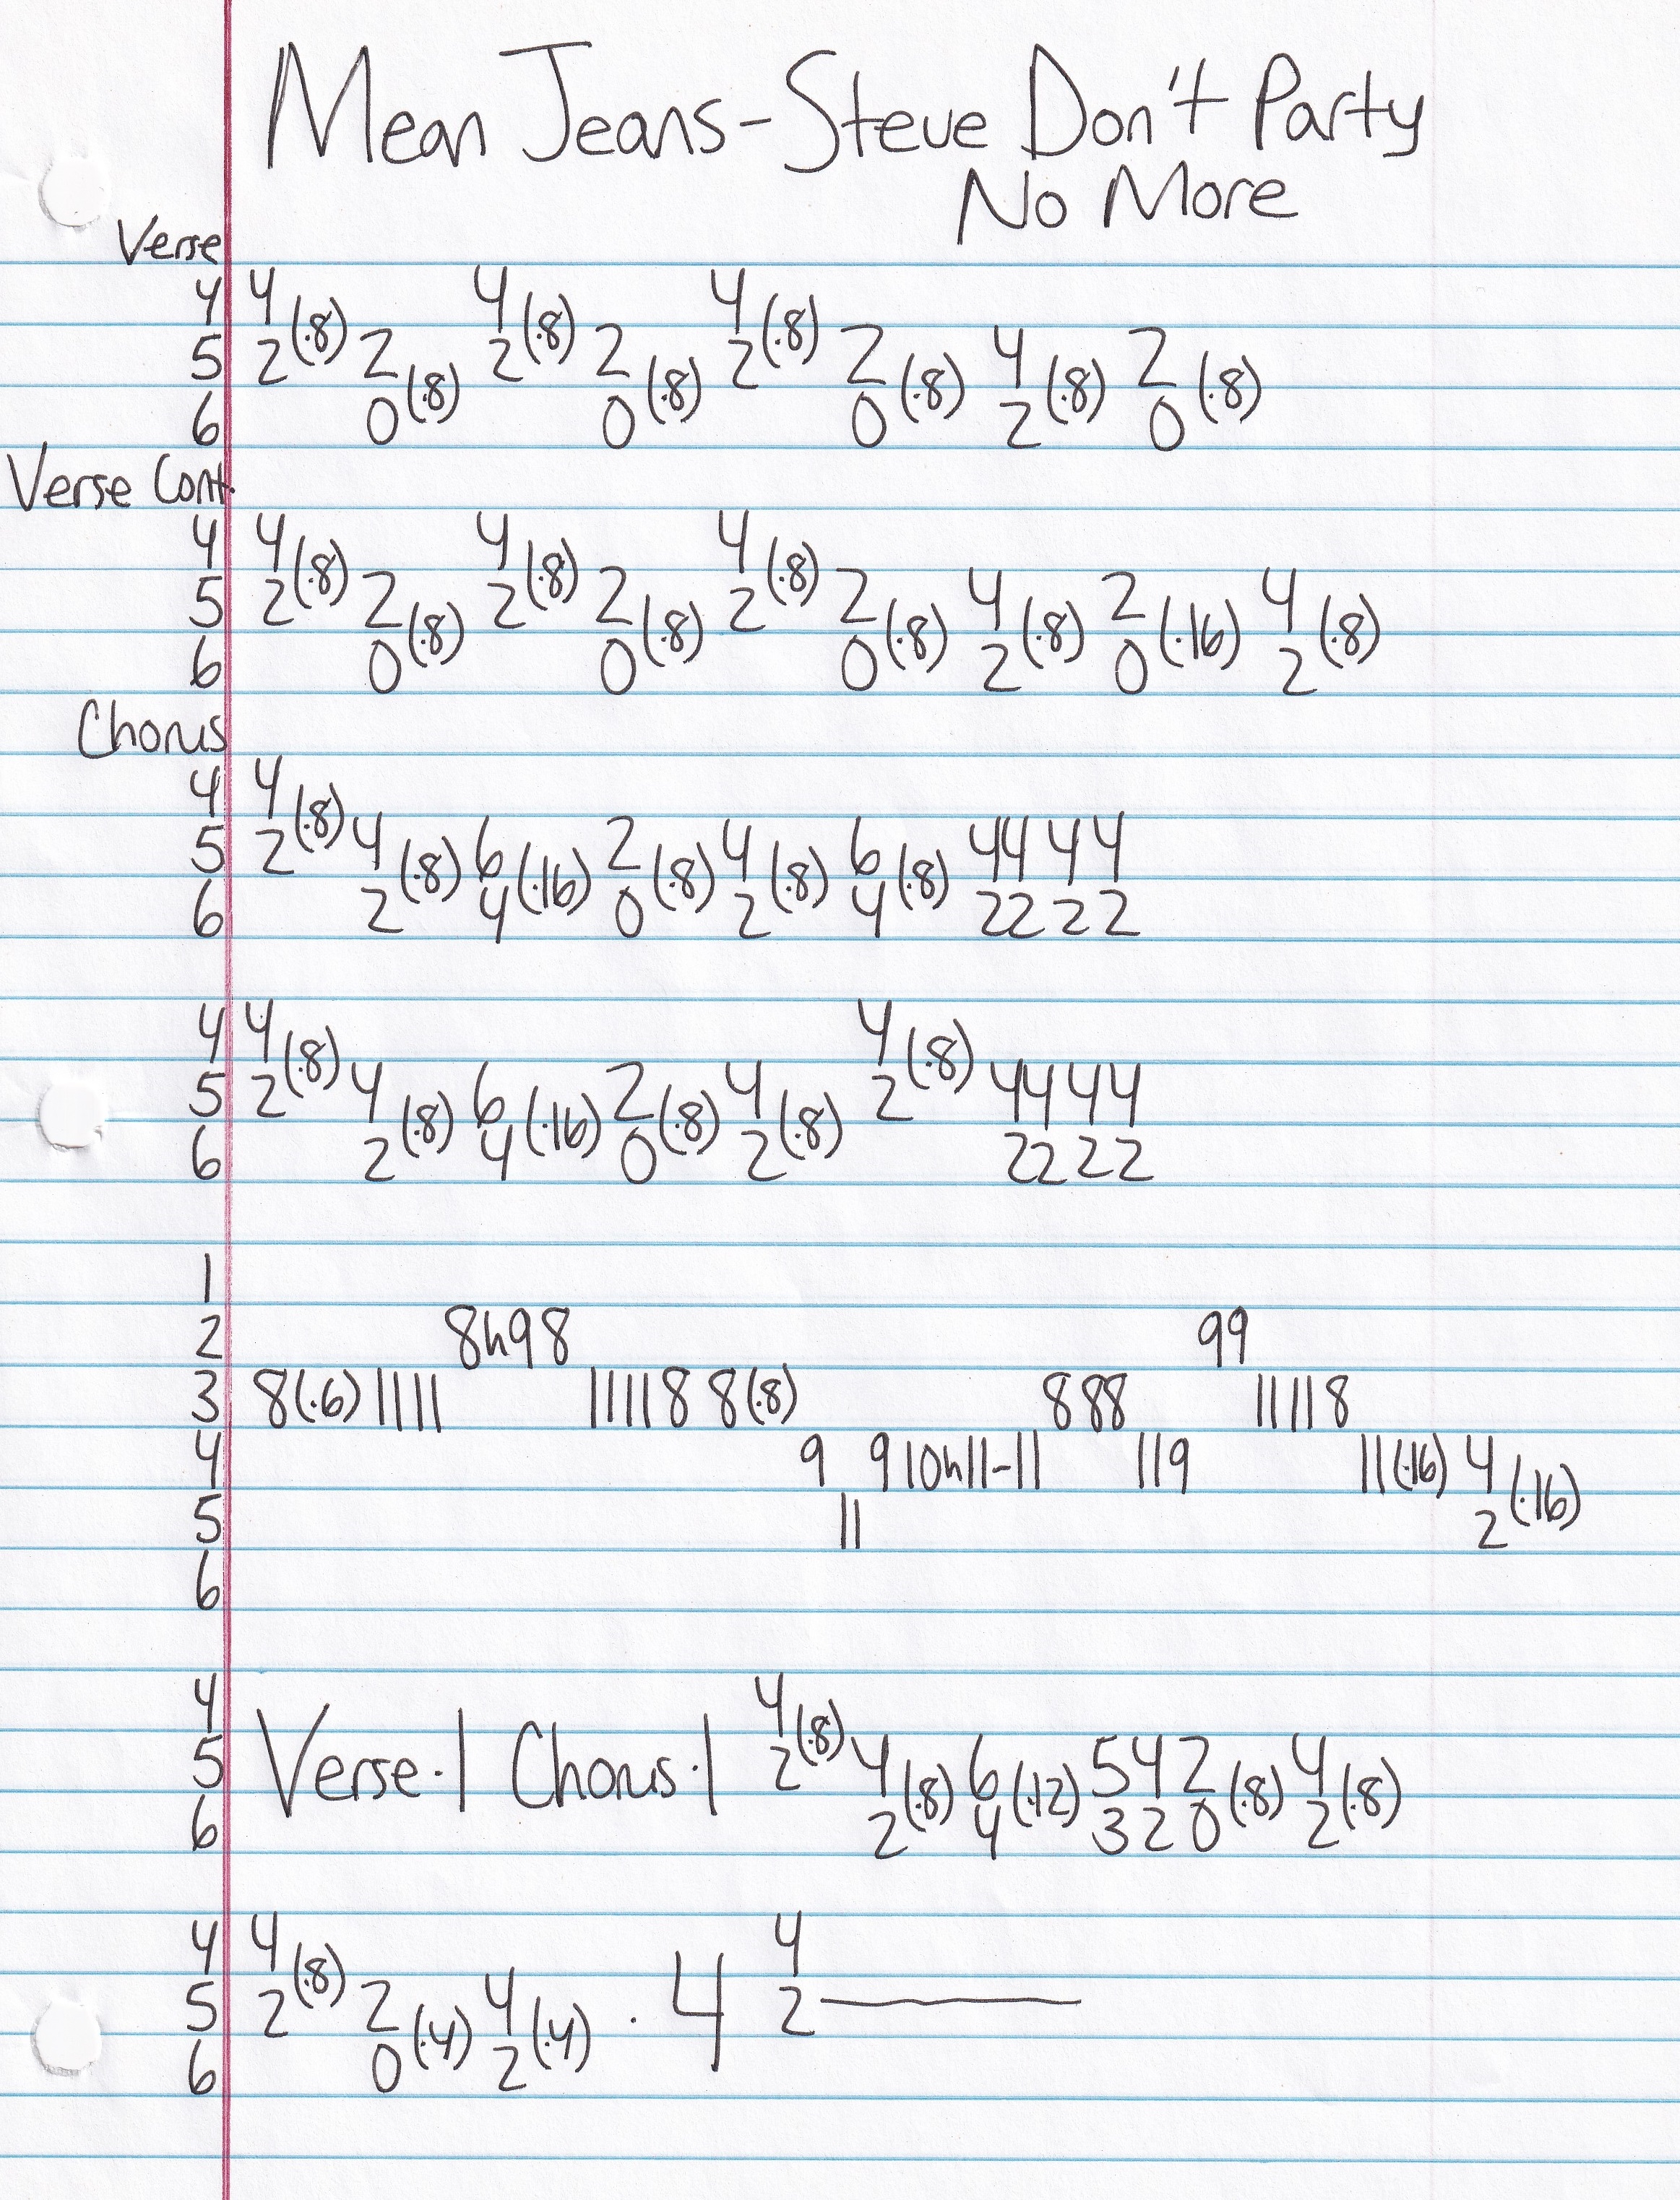 Mean Jeans-Steve Don't Party
No More
Verse
4 4 4 4
5 2(·8) 2 2(·8) 2 2(·8) 2 4 2
6 0(·8) 0(·8) 0(·8) 2(·8) 0(·8)
Verse Cont.
4 4 4 4
5 2(·8) 2 2(·8) 2 2(·8) 2 4 2 4
6 0(·8) 0(·8) 0(·8) 2(·8) 0(·16) 2(·8)
Chorus
4 4
5 2(·8) 4 6 2 4 6 44 4 4
6 2(·8) 4(·16) 0(·8) 2(·8) 4(·8) 22 2 2
4 4 4
5 2(·8) 4 6 2 4 2(·8) 4444
6 2(·8) 4(·16) 0(·8) 2(·8) 2222
1
2 8h98 99
3 8(·6) 1111 11118 8(·8) 888 11118
4 9 9 10h11-11 119 11(·16) 4
5 11 2(·16)
6
4 4
5 Verse·1 Chorus·1 2(·8) 4 6 5 4 2 4
6 2(·8) 4(·12) 3 2 0(·8) 2(·8)
4 4 4
5 2(·8) 2 4 · 4 2
6 0(·4) 2(·4)